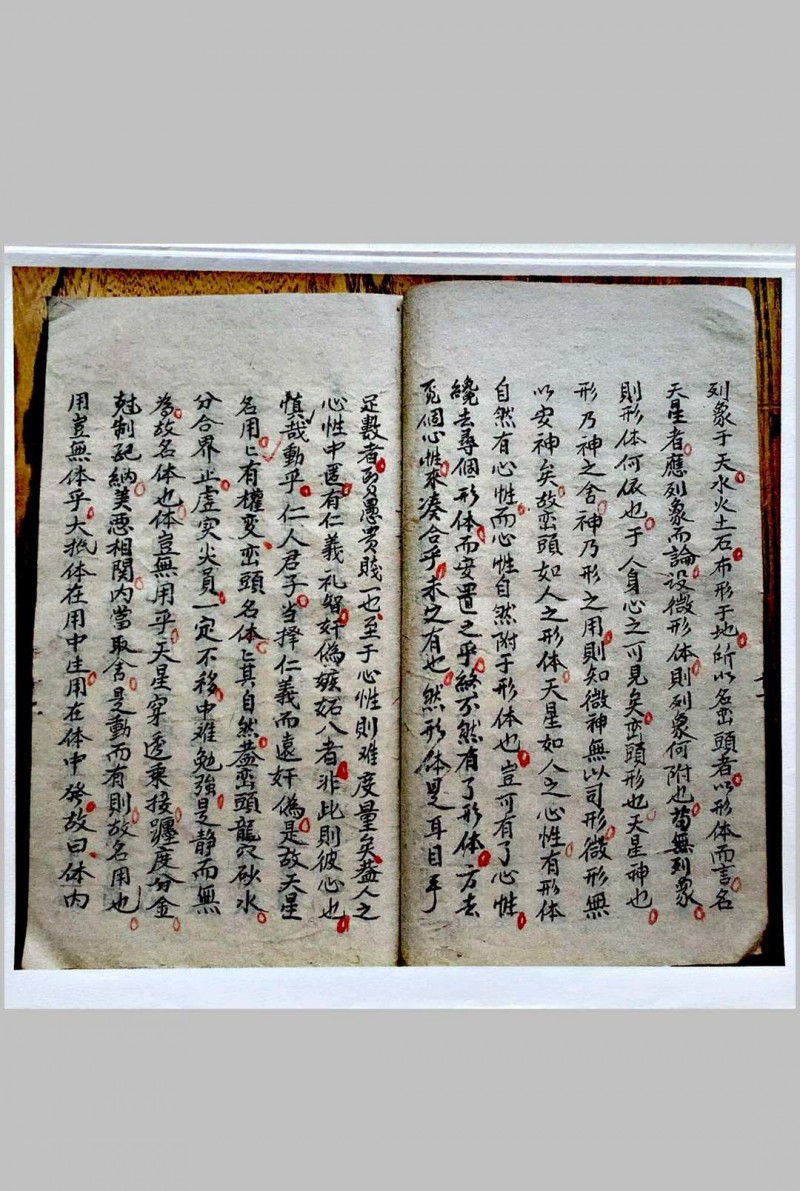 列象于天水火土石布形于地所以名巒頭者以形体而言名
天星者應列象而論設微形体則列象何附也苟無列象
則形体何依也于人身心之可見矣巒頭形也天星神也
形乃神之舍神乃形之用則知微神無以司形微形無
以安神矣故巒頭如人之形体天星如人之心性有形体
自然有心性而心性自然附于形体也豈可有了心性
纔去尋個形体而安置之乎終不然有了形体方去
覓個心性來凑合乎未之有也然形体是耳目手
足數者愚贵賤一也至于心性則难度量矣盖人之
心性中匿有仁義礼智奸偽嫉妬八者非此則彼心也
慎哉動乎仁人君子当擇仁義而遠奸偽是故天星
名用〻有權变巒頭名体〻其自然盖巒頭龍穴砂水
分合界止虚实尖員一定不移中难勉強是静而無
為故名体也体豈無用乎天星穿透乘接躔度分金
尅制配納美悪相関内當取舍是動而有則故名用也
用豈無体乎大抵体在用中生用在体中發故曰体内